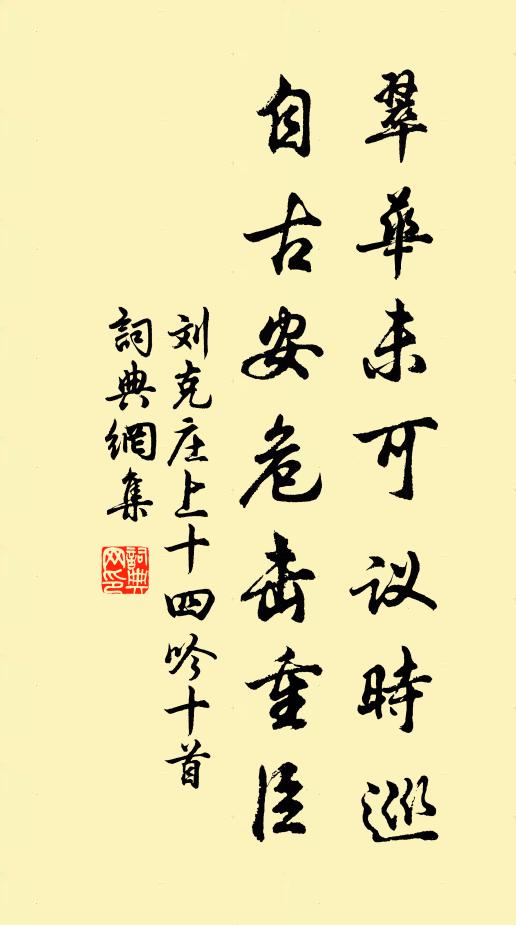 翠華未可议時巡
自古安危击重臣
刘克庄上十四吟十首
詞典網集
詞典网印